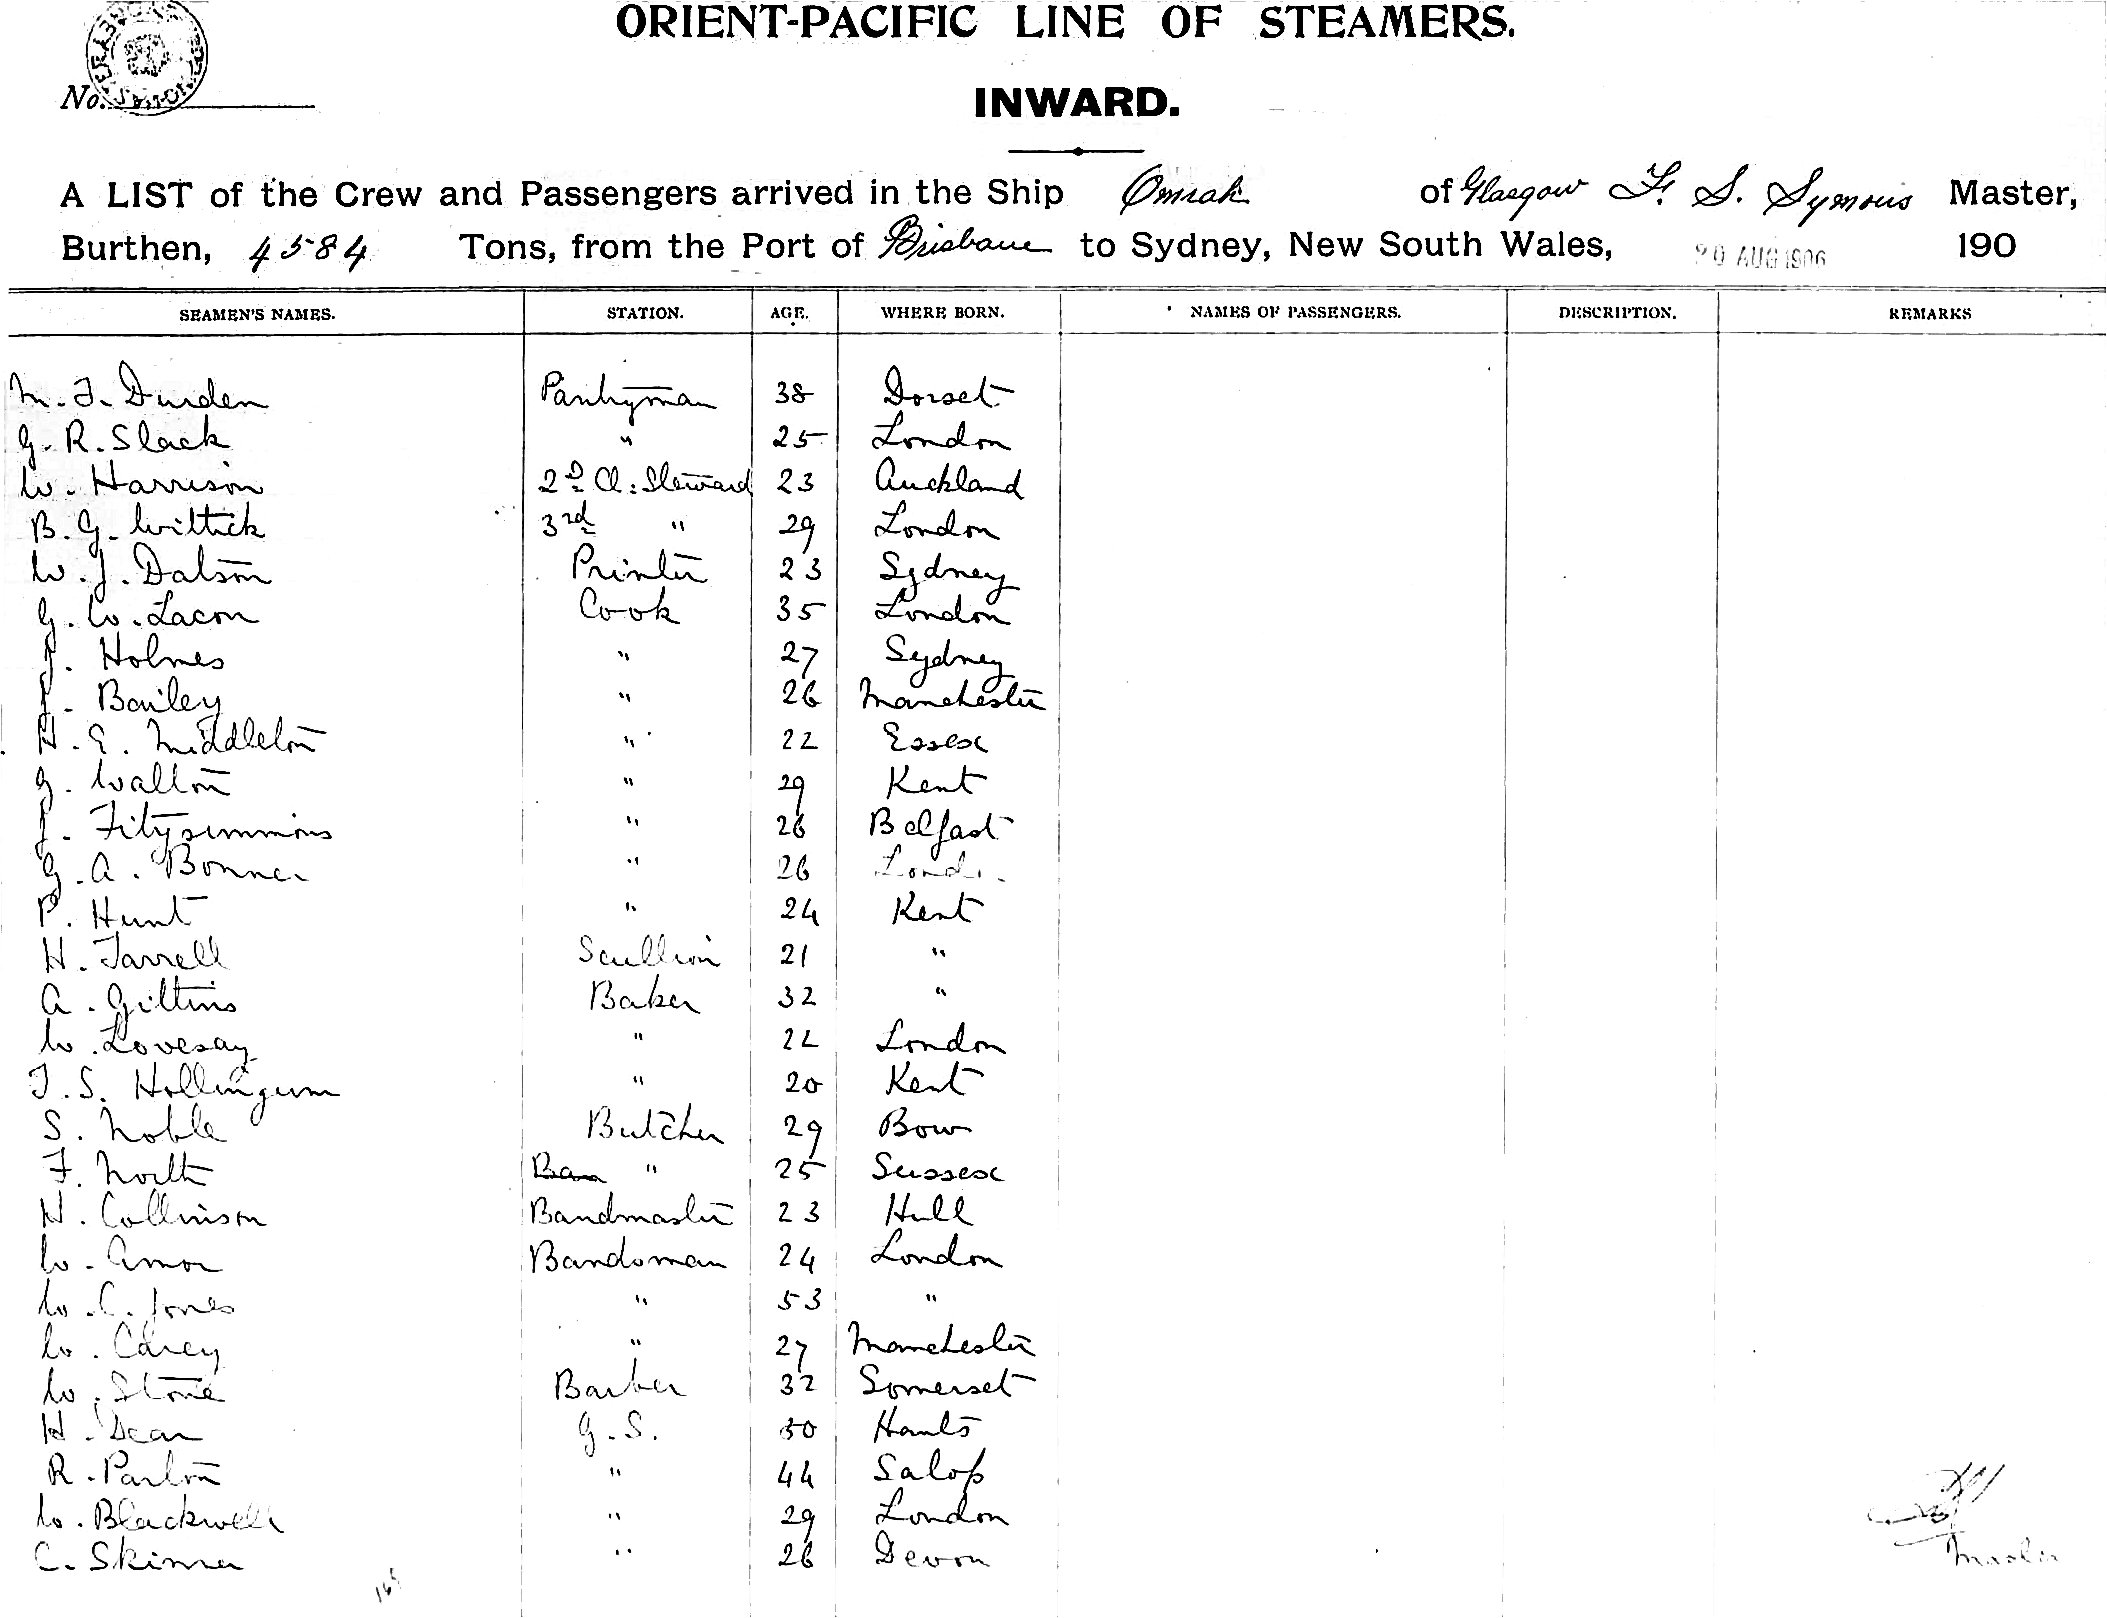 ORIENT-PACIFIC LINE OF STEAMERS.
No.
INWARD.
A LIST of the Crew and Passengers arrived in the Ship Omrah of Glasgow F. S. Symons Master,
Burthen, 4584 Tons, from the Port of Brisbane to Sydney, New South Wales, 20 AUG 1906 190
SEAMEN'S NAMES. STATION. AGE. WHERE BORN. NAMES OF PASSENGERS. DESCRIPTION. REMARKS
M. J. Durden Pantryman 38 Dorset
G. R. Slack " 25 London
W. Harrison 2nd Cl: Steward 23 Auckland
B. G. Wittick 3rd " 29 London
W. J. Dalson Printer 23 Sydney
G. W. Lacon Cook 35 London
J. Holmes " 27 Sydney
J. Bailey " 26 Manchester
H. E. Middleton " 22 Essex
G. Walton " 29 Kent
J. Fitzsimmons " 26 Belfast
G. A. Bonner " 26 London
P. Hunt " 24 Kent
H. Jarrell Scullion 21 "
A. Gittins Baker 32 "
W. Lovesay " 22 London
T. S. Hollingum " 20 Kent
S. Noble Butcher 29 Bow
F. North Ban " 25 Sussex
H. Collinson Bandmaster 23 Hull
W. Amor Bandsman 24 London
W. C. Jones " 53 "
W. Carey " 27 Manchester
W. Stone Barber 32 Somerset
H. Dean G. S. 50 Hants
R. Parton " 44 Salop
W. Blackwell " 29 London
C. Skinner " 26 Devon
Master